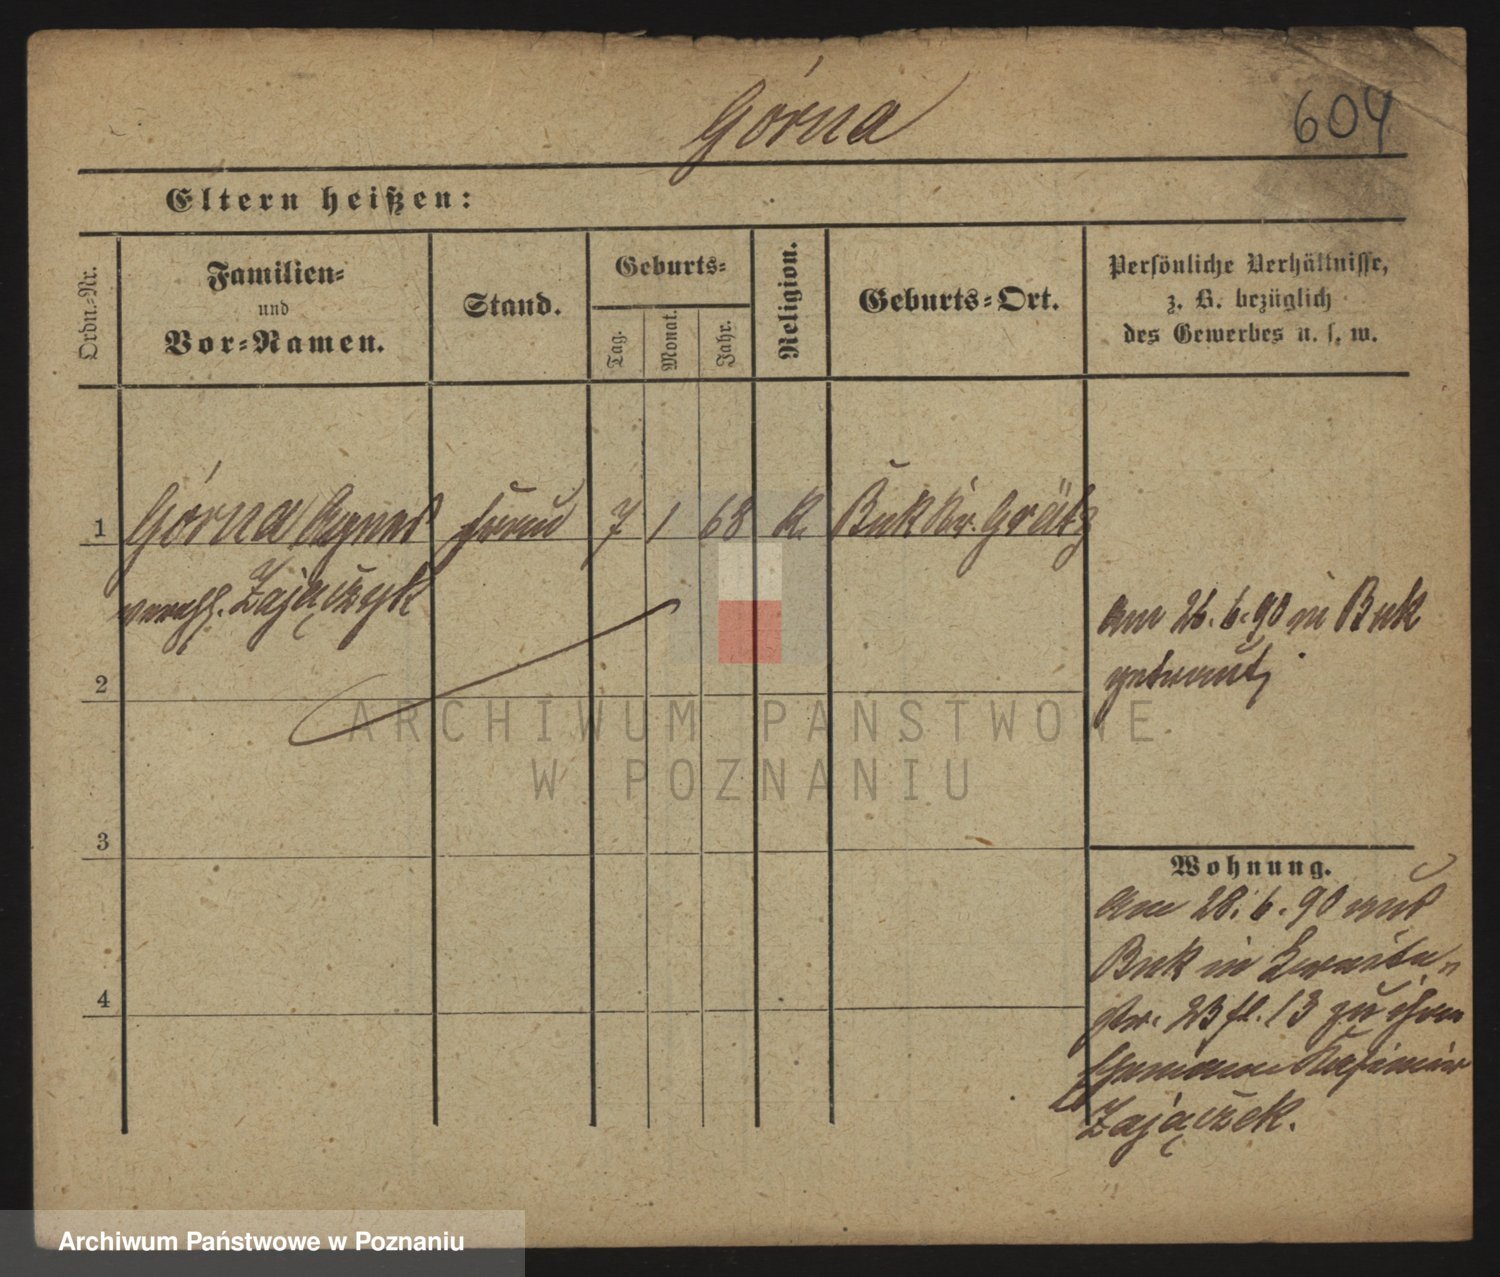 Górna
604
Eltern heißen:
Ordn.-Nr.
Familien-
und
Vor-Namen.
Stand.
Geburts-
Tag.
Monat.
Jahr.
Religion.
Geburts-Ort.
Persönliche Verhältnisse,
z. B. bezüglich
des Gewerbes u. s. w.
1 Górna Agnes 7 1 68 K. Buk Kr. Grätz
verehl. Zajączek
am 26. 6. 90 in Buk
getraut,
2
ARCHIWUM PAŃSTWOWE
W POZNANIU
3
Wohnung.
am 28. 6. 90 aus
Buk in
4
str. 23 fl. 13 zu ihrem
Ehemann Kasimir
Zajączek.
Archiwum Państwowe w Poznaniu